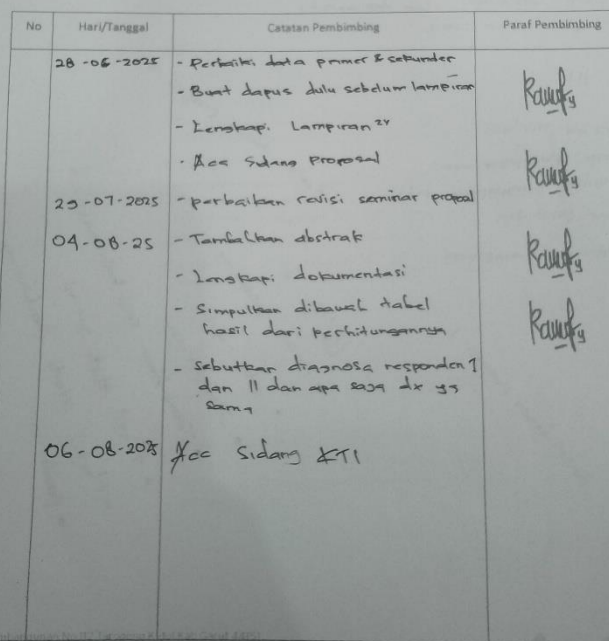 No Hari/Tanggal Catatan Pembimbing Paraf Pembimbing
28-06-2025 - Perbaiki data primer & sekunder
- Buat dapus dulu sebelum lampiran
- Lengkapi Lampiran 24
- Acc Sidang Proposal
29-07-2025 - perbaikan revisi seminar proposal
04-08-25 - Tambahkan abstrak
- Lengkapi dokumentasi
- Simpulkan dibawah tabel
hasil dari perhitungannya
- Sebutkan diagnosa responden 1
dan II dan apa saja dx yg
sama
06-08-2025 Acc Sidang KTI